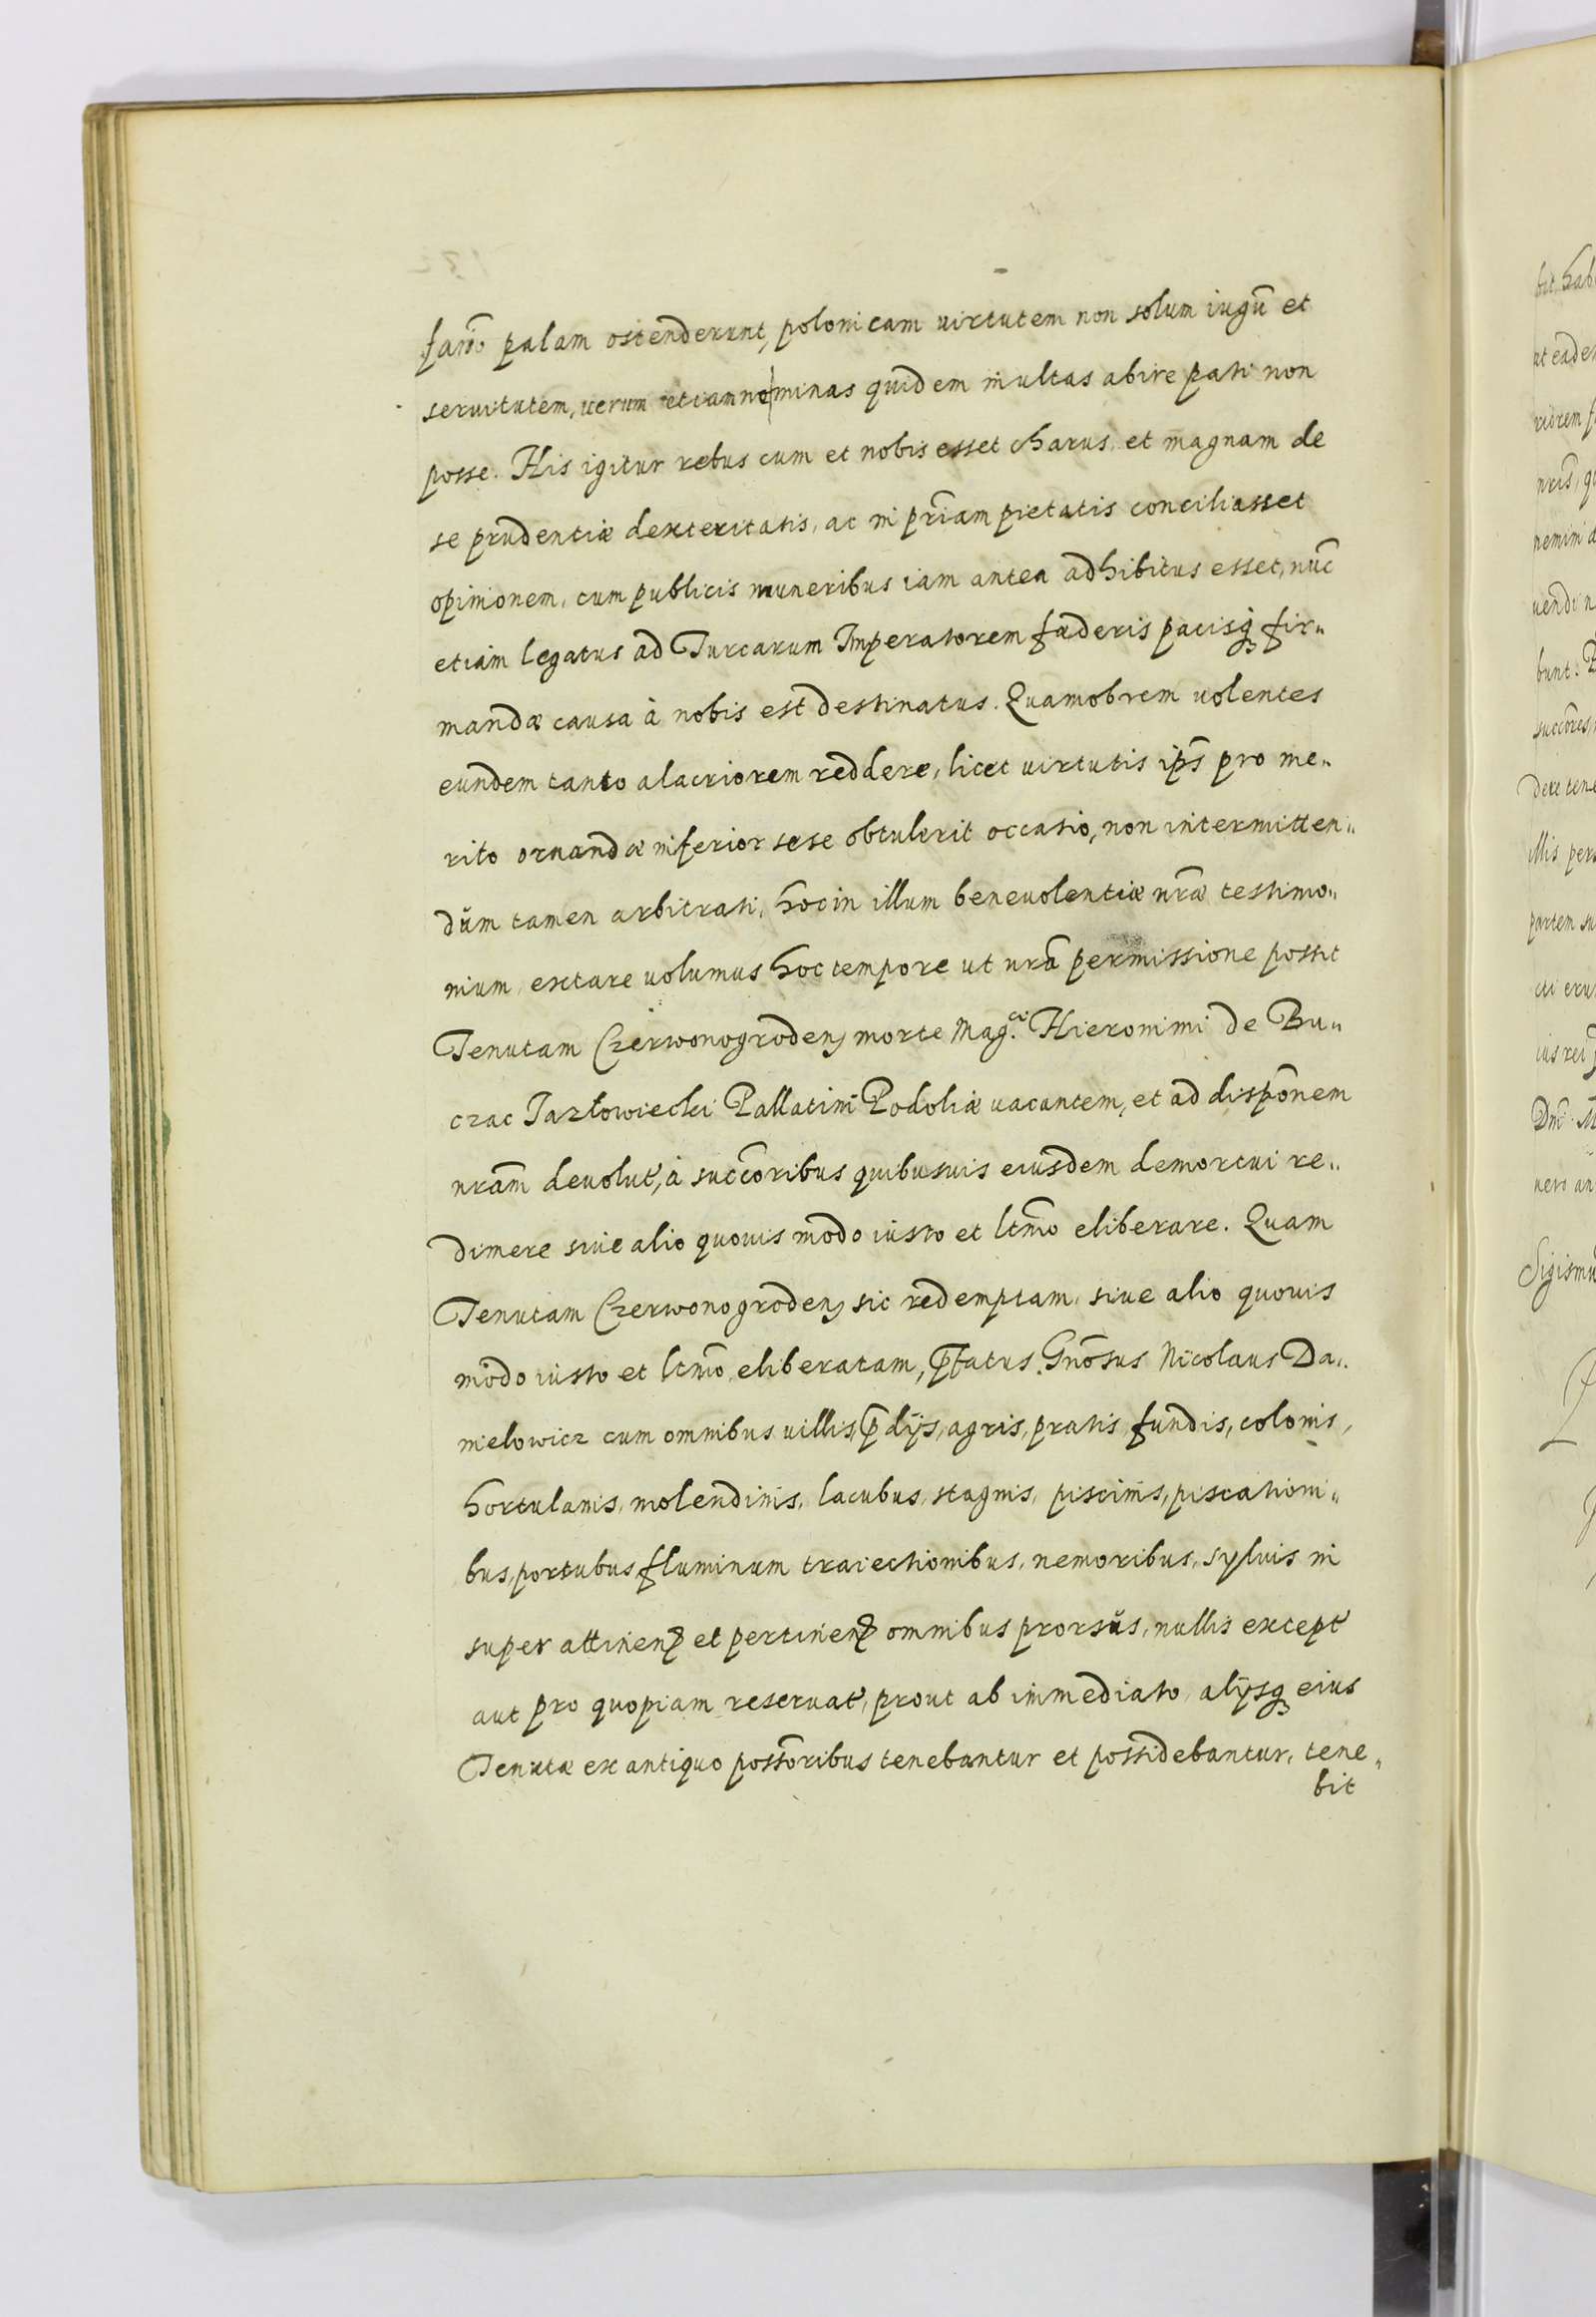 palam ostenderunt, polonicam uirtutem non solum iugū et
seruitutem, uerum etiamne minas quidem inultas abire pati non
posse. His igitur rebus cum et nobis esset charus, et magnam de
se prudentiæ dexteritatis, ac in pr̃iam pietatis conciliasset
opinionem, cum publicis muneribus iam antea adhibitus esset, nūc
etiam legatus ad Turcarum Imperatorem fæderis pacisq; fir„
mandæ causa à nobis est destinatus. Quamobrem uolentes
eundem tanto alacriorem reddere, licet uirtutis ip̃s pro me„
rito ornandæ inferior sese obtulerit occasio, non intermitten„
dŭm tamen arbitrati, hoc in illum beneuolentiæ nr̃æ testimo„
nium extare uolumus hoc tempore ut nr̃a permissione possit
Tenutam Czerwonogroden̨ morte Mag.ci Hieronimi de Bu„
czac Jazłowiecki Pallatini Podoliæ uacantem, et ad dispõnem
nr̃am deuolut', à succ̃oribus quibusuis eiusdem demortui re„
dimere siue alio quouis modo iusto et ltm̃o eliberare. Quam
Tenutam Czerwonogroden̨ sic redemptam, siue alio quouis
modo iusto et ltm̃o eliberatam, p̃fatus Gnõsus Nicolaus Da„
nielowicz cum omnibus uillis, p̃dijs, agris, pratis, fundis, colonis,
hortulanis, molendinis, lacubus, stagnis, piscinis, piscationi„
bus, portubus, fluminum traiectionibus, nemoribus, syluis in
super attinen̨ et pertinen̨ omnibus prorsŭs, nullis except'
aut pro quopiam reseruat', prout ab immediato, alijsq; eius
Tenutæ ex antiquo poss̃oribus tenebantur et possidebantur, tene„
bit